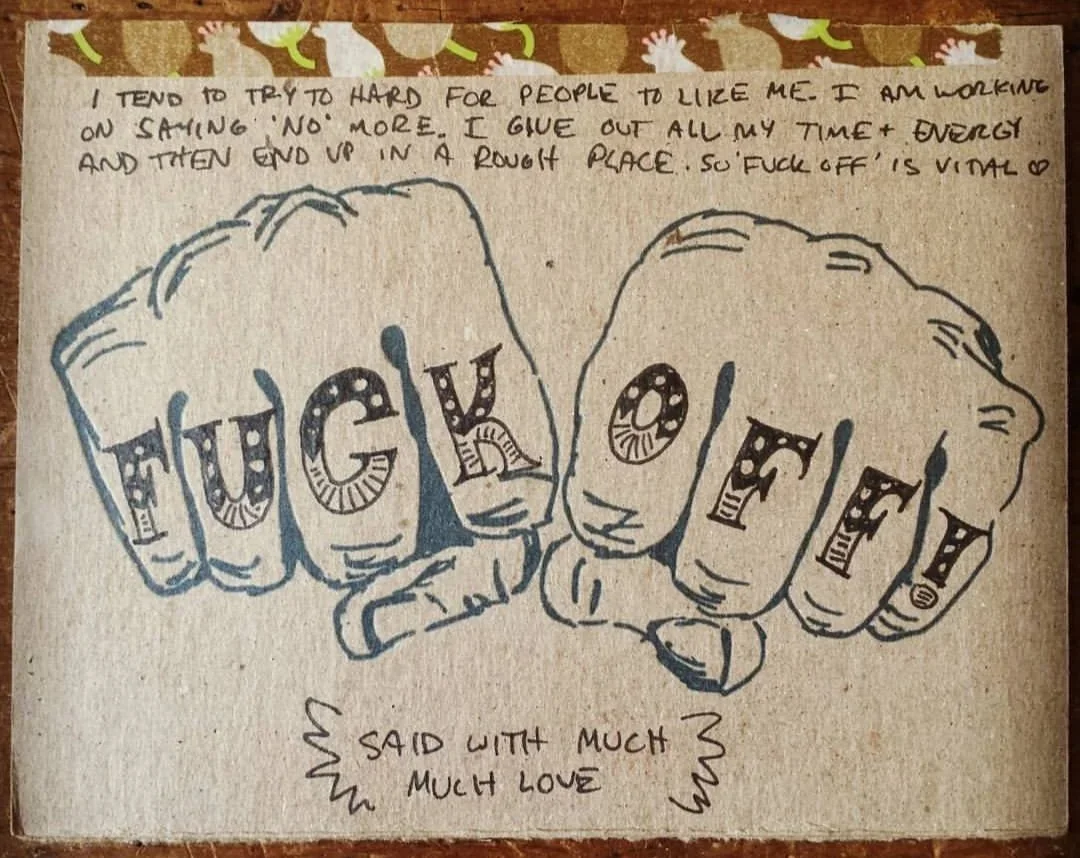 I TEND TO TRY TO HARD FOR PEOPLE TO LIKE ME. I AM WORKING
ON SAYING 'NO' MORE. I GIVE OUT ALL MY TIME + ENERGY
AND THEN END UP IN A ROUGH PLACE. SO 'FUCK OFF' IS VITAL ♡
FUCK OFF!
SAID WITH MUCH
MUCH LOVE